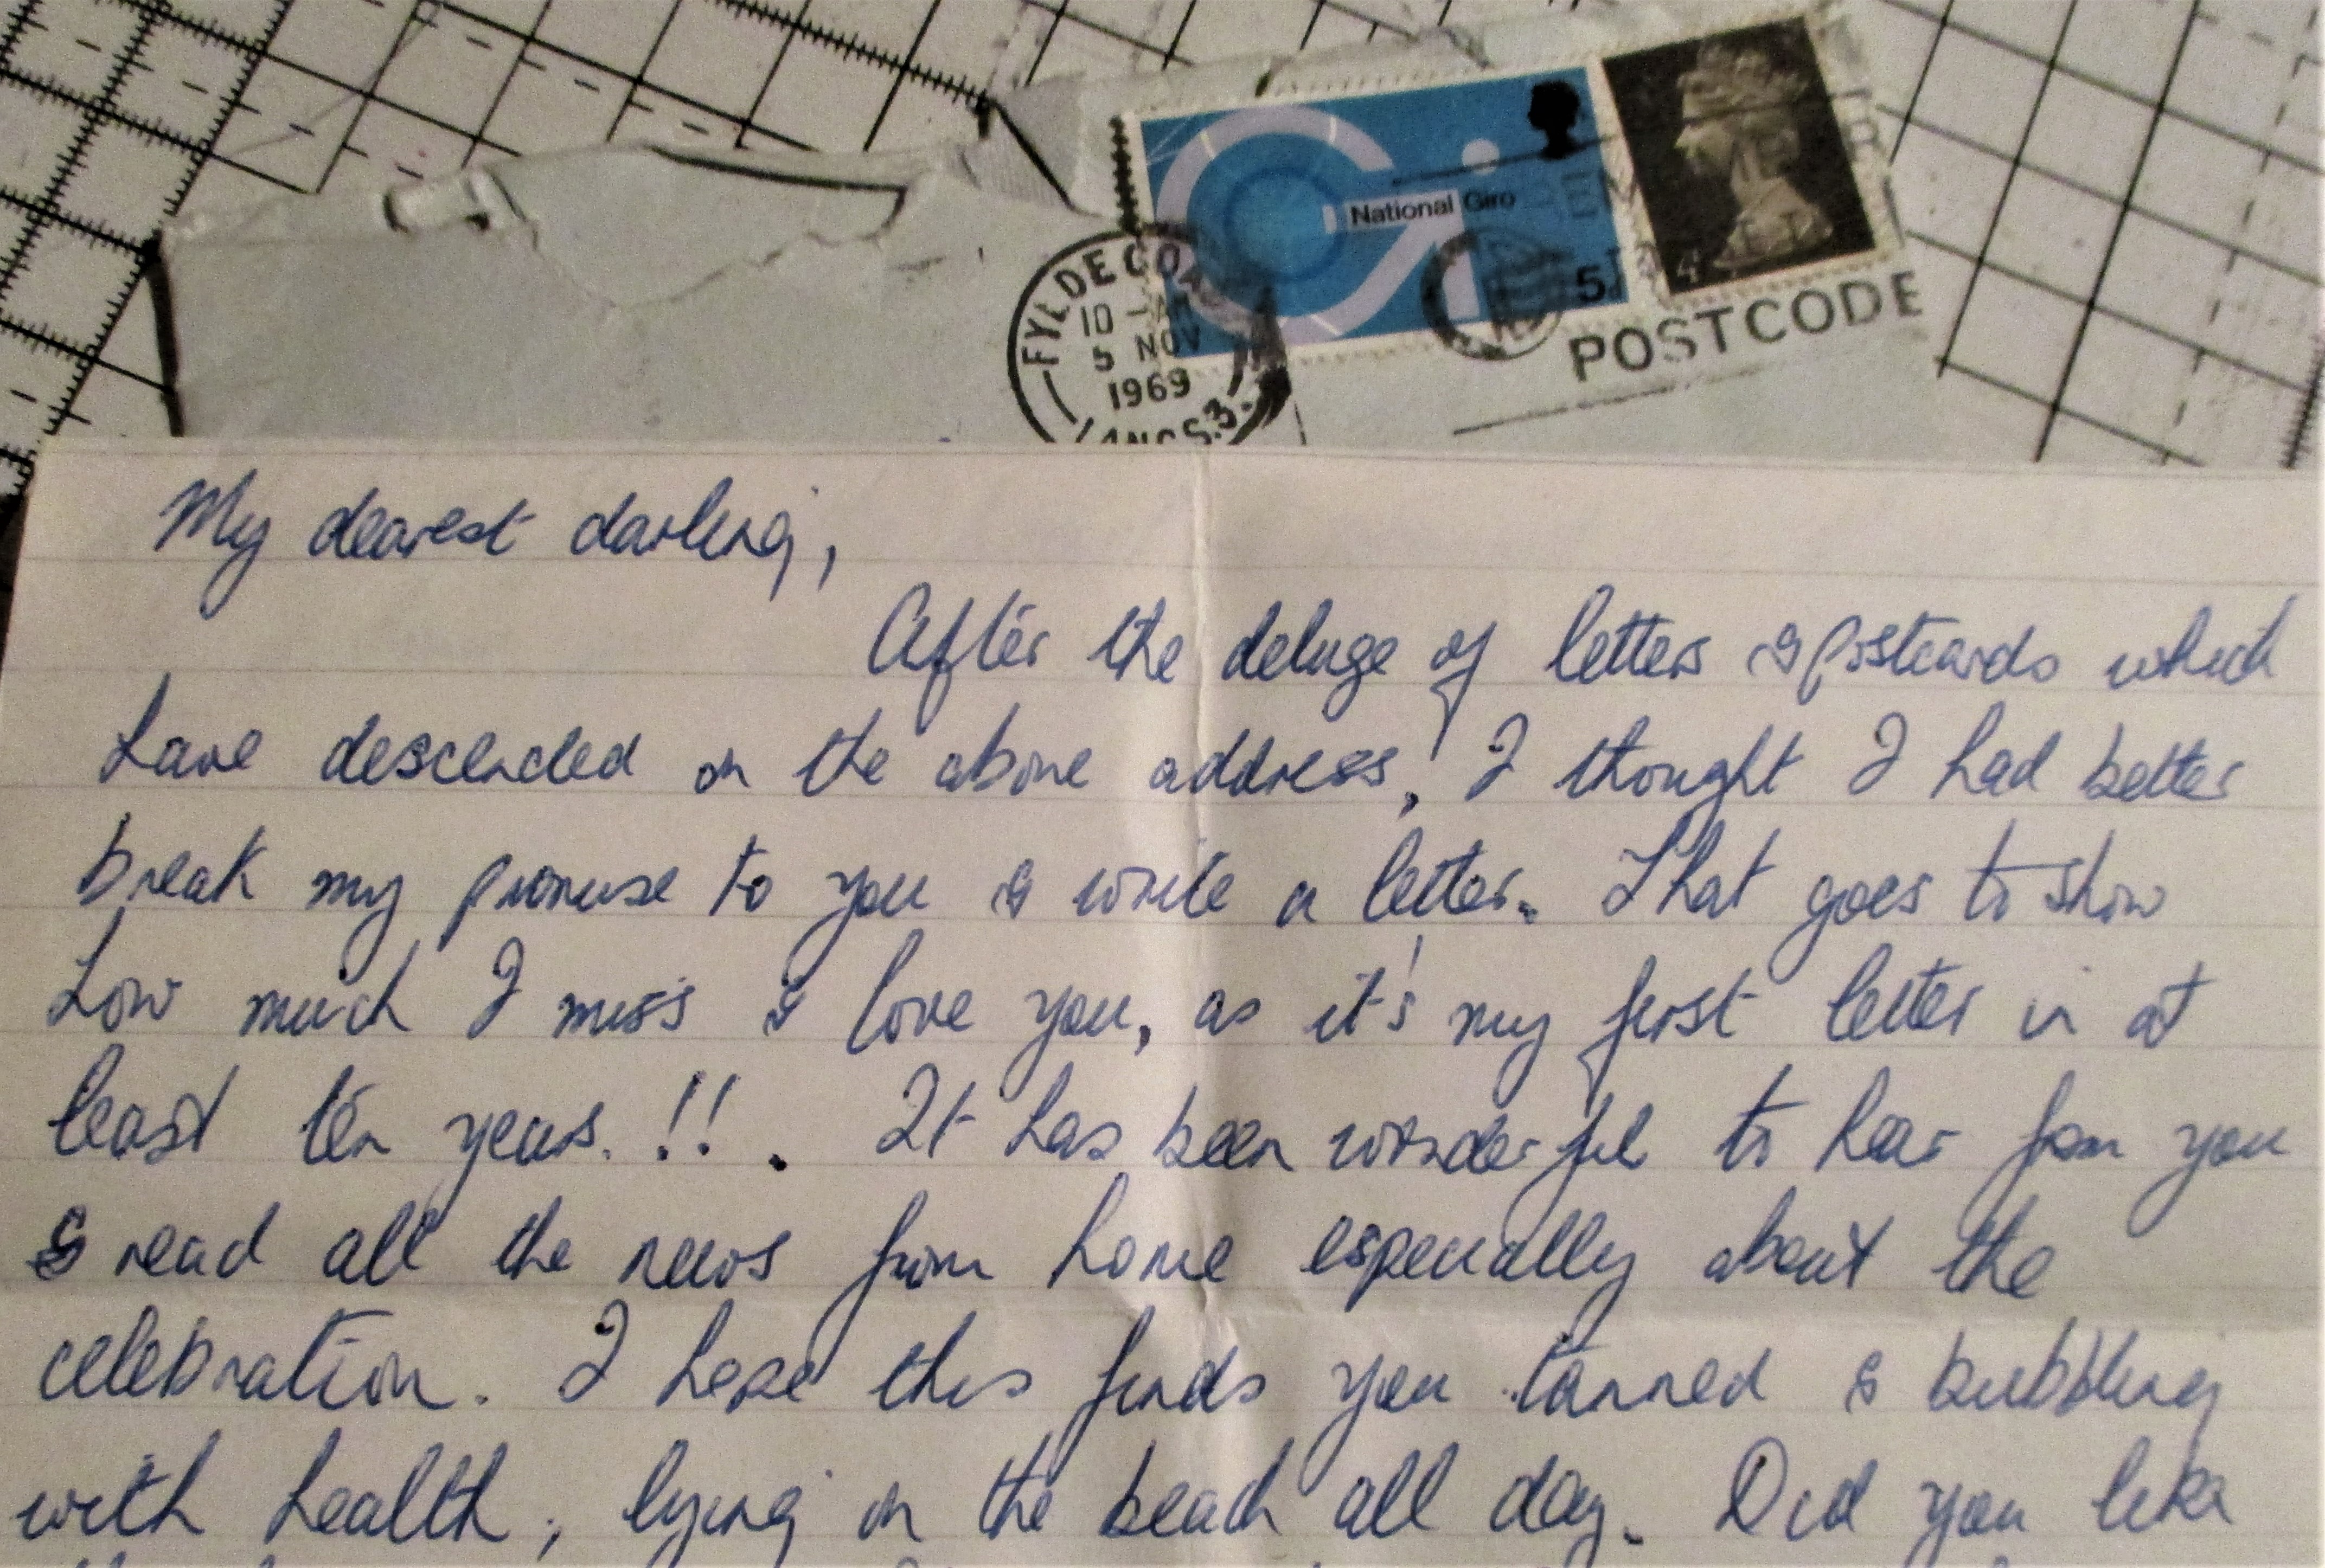 National Giro
5
4
FYLDE COAST
10 - AM
5 NOV
1969
LANCS. 3.
POSTCODE
My dearest darling,
After the deluge of letters & postcards which
have descended on the above address, I thought I had better
break my promise to you & write a letter. That goes to show
how much I miss & love you, as it's my first letter in at
least ten years. !! . It has been wonderful to hear from you
& read all the news from home especially about the
celebration. I hope this finds you tanned & bubbling
with health, lying on the beach all day. Did you like